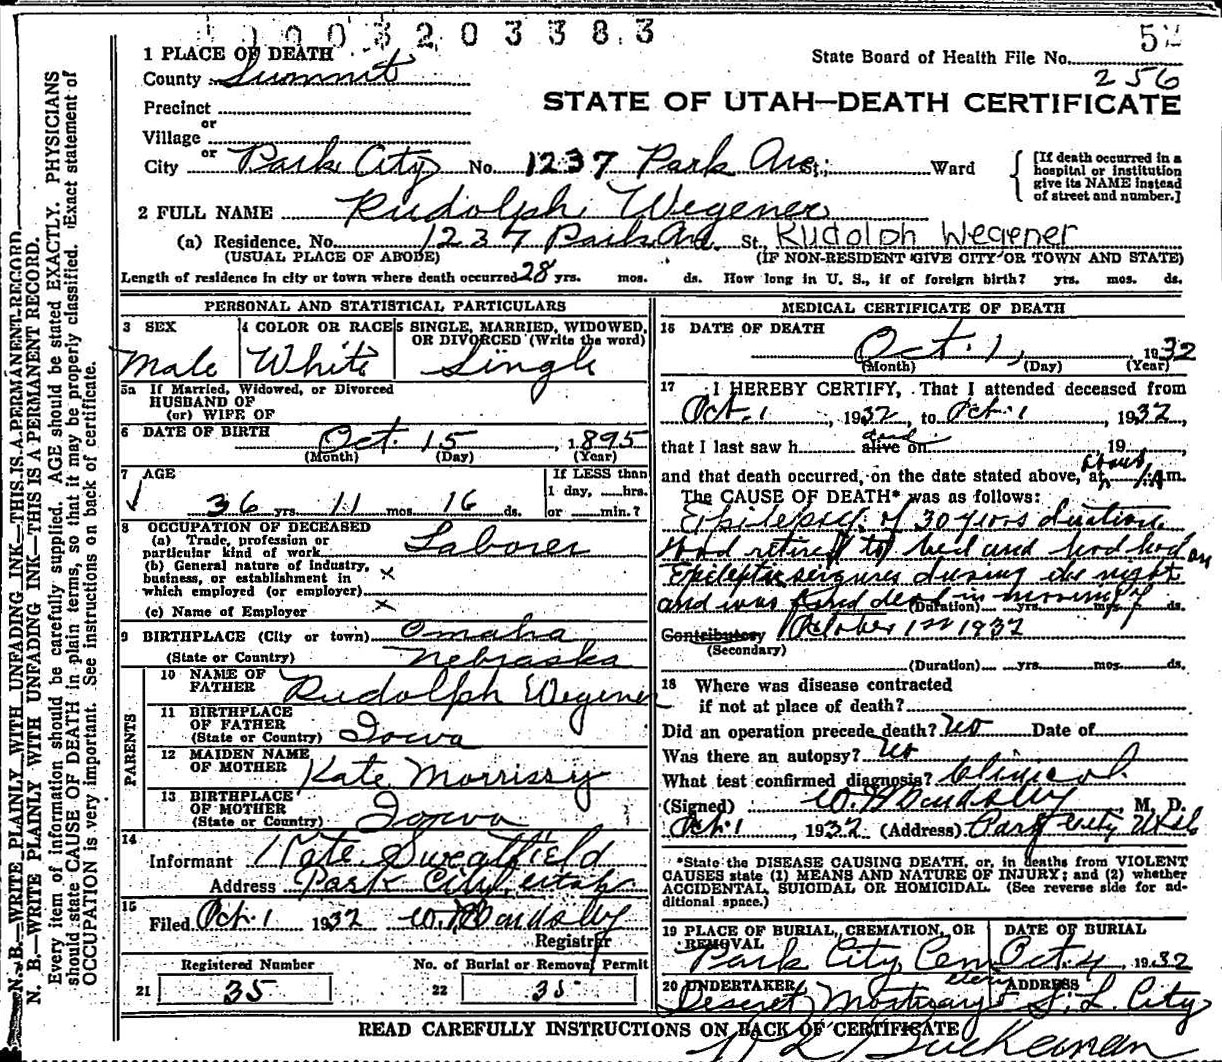 0003203383
52
1 PLACE OF DEATH
State Board of Health File No. 256
County Summit
STATE OF UTAH—DEATH CERTIFICATE
Precinct
or
Village
or
City Park City No. 1237 Park Ave St.; Ward
[If death occurred in a hospital or institution give its NAME instead of street and number.]
2 FULL NAME Rudolph Wegener
(a) Residence. No. 1237 Park Ave. St. Rudolph Wegener
(USUAL PLACE OF ABODE) (IF NON-RESIDENT GIVE CITY OR TOWN AND STATE)
Length of residence in city or town where death occurred 28 yrs. mos. ds. How long in U. S., if of foreign birth? yrs. mos. ds.
PERSONAL AND STATISTICAL PARTICULARS
3 SEX
Male
4 COLOR OR RACE
White
5 SINGLE, MARRIED, WIDOWED, OR DIVORCED (Write the word)
Single
5a If Married, Widowed, or Divorced
HUSBAND OF
(or) WIFE OF
6 DATE OF BIRTH Oct. 15 1895
(Month) (Day) (Year)
7 AGE
36 yrs. 11 mos. 16 ds.
If LESS than
1 day, hrs.
or min.?
8 OCCUPATION OF DECEASED
(a) Trade, profession or
particular kind of work Laborer
(b) General nature of industry,
business, or establishment in
which employed (or employer) x
(c) Name of Employer x
9 BIRTHPLACE (City or town) Omaha
(State or Country) Nebraska
PARENTS
10 NAME OF FATHER Rudolph Wegener
11 BIRTHPLACE OF FATHER
(State or Country) Iowa
12 MAIDEN NAME OF MOTHER Kate Morrissy
13 BIRTHPLACE OF MOTHER
(State or Country) Iowa
14
Informant Kate Sweatfield
Address Park City, Utah
15
Filed Oct. 1 1932
Registrar
Registered Number
21 35
No. of Burial or Removal Permit
22 35
MEDICAL CERTIFICATE OF DEATH
16 DATE OF DEATH
Oct. 1, 1932
(Month) (Day) (Year)
17 I HEREBY CERTIFY, That I attended deceased from
Oct. 1, 1932, to Oct. 1, 1932,
that I last saw h alive on dead 19
and that death occurred, on the date stated above, at about m.
The CAUSE OF DEATH* was as follows:
Epilepsy of 30 years duration
Had retired to bed and had had an
Epileptic seizures during the night
and was found dead in morning of
(Duration) yrs. mos. ds.
Contributory October 1st 1932
(Secondary)
(Duration) yrs. mos. ds.
18 Where was disease contracted
if not at place of death?
Did an operation precede death? No Date of
Was there an autopsy? No
What test confirmed diagnosis? Clinical
(Signed) M. D.
Oct. 1, 1932 (Address) Park City Utah
*State the DISEASE CAUSING DEATH, or, in deaths from VIOLENT
CAUSES state (1) MEANS AND NATURE OF INJURY; and (2) whether
ACCIDENTAL, SUICIDAL OR HOMICIDAL. (See reverse side for ad-
ditional space.)
19 PLACE OF BURIAL, CREMATION, OR REMOVAL
Park City Cemetery
DATE OF BURIAL
Oct. 4 1932
20 UNDERTAKER
Deseret Mortuary
ADDRESS
S. L. City
READ CAREFULLY INSTRUCTIONS ON BACK OF CERTIFICATE
Buckeanan
N. B.—WRITE PLAINLY WITH UNFADING INK—THIS IS A PERMANENT RECORD
N. B.—WRITE PLAINLY WITH UNFADING INK—THIS IS A PERMANENT RECORD.
Every item of information should be carefully supplied. AGE should be stated EXACTLY. PHYSICIANS
should state CAUSE OF DEATH in plain terms, so that it may be properly classified. Exact statement of
OCCUPATION is very important. See instructions on back of certificate.